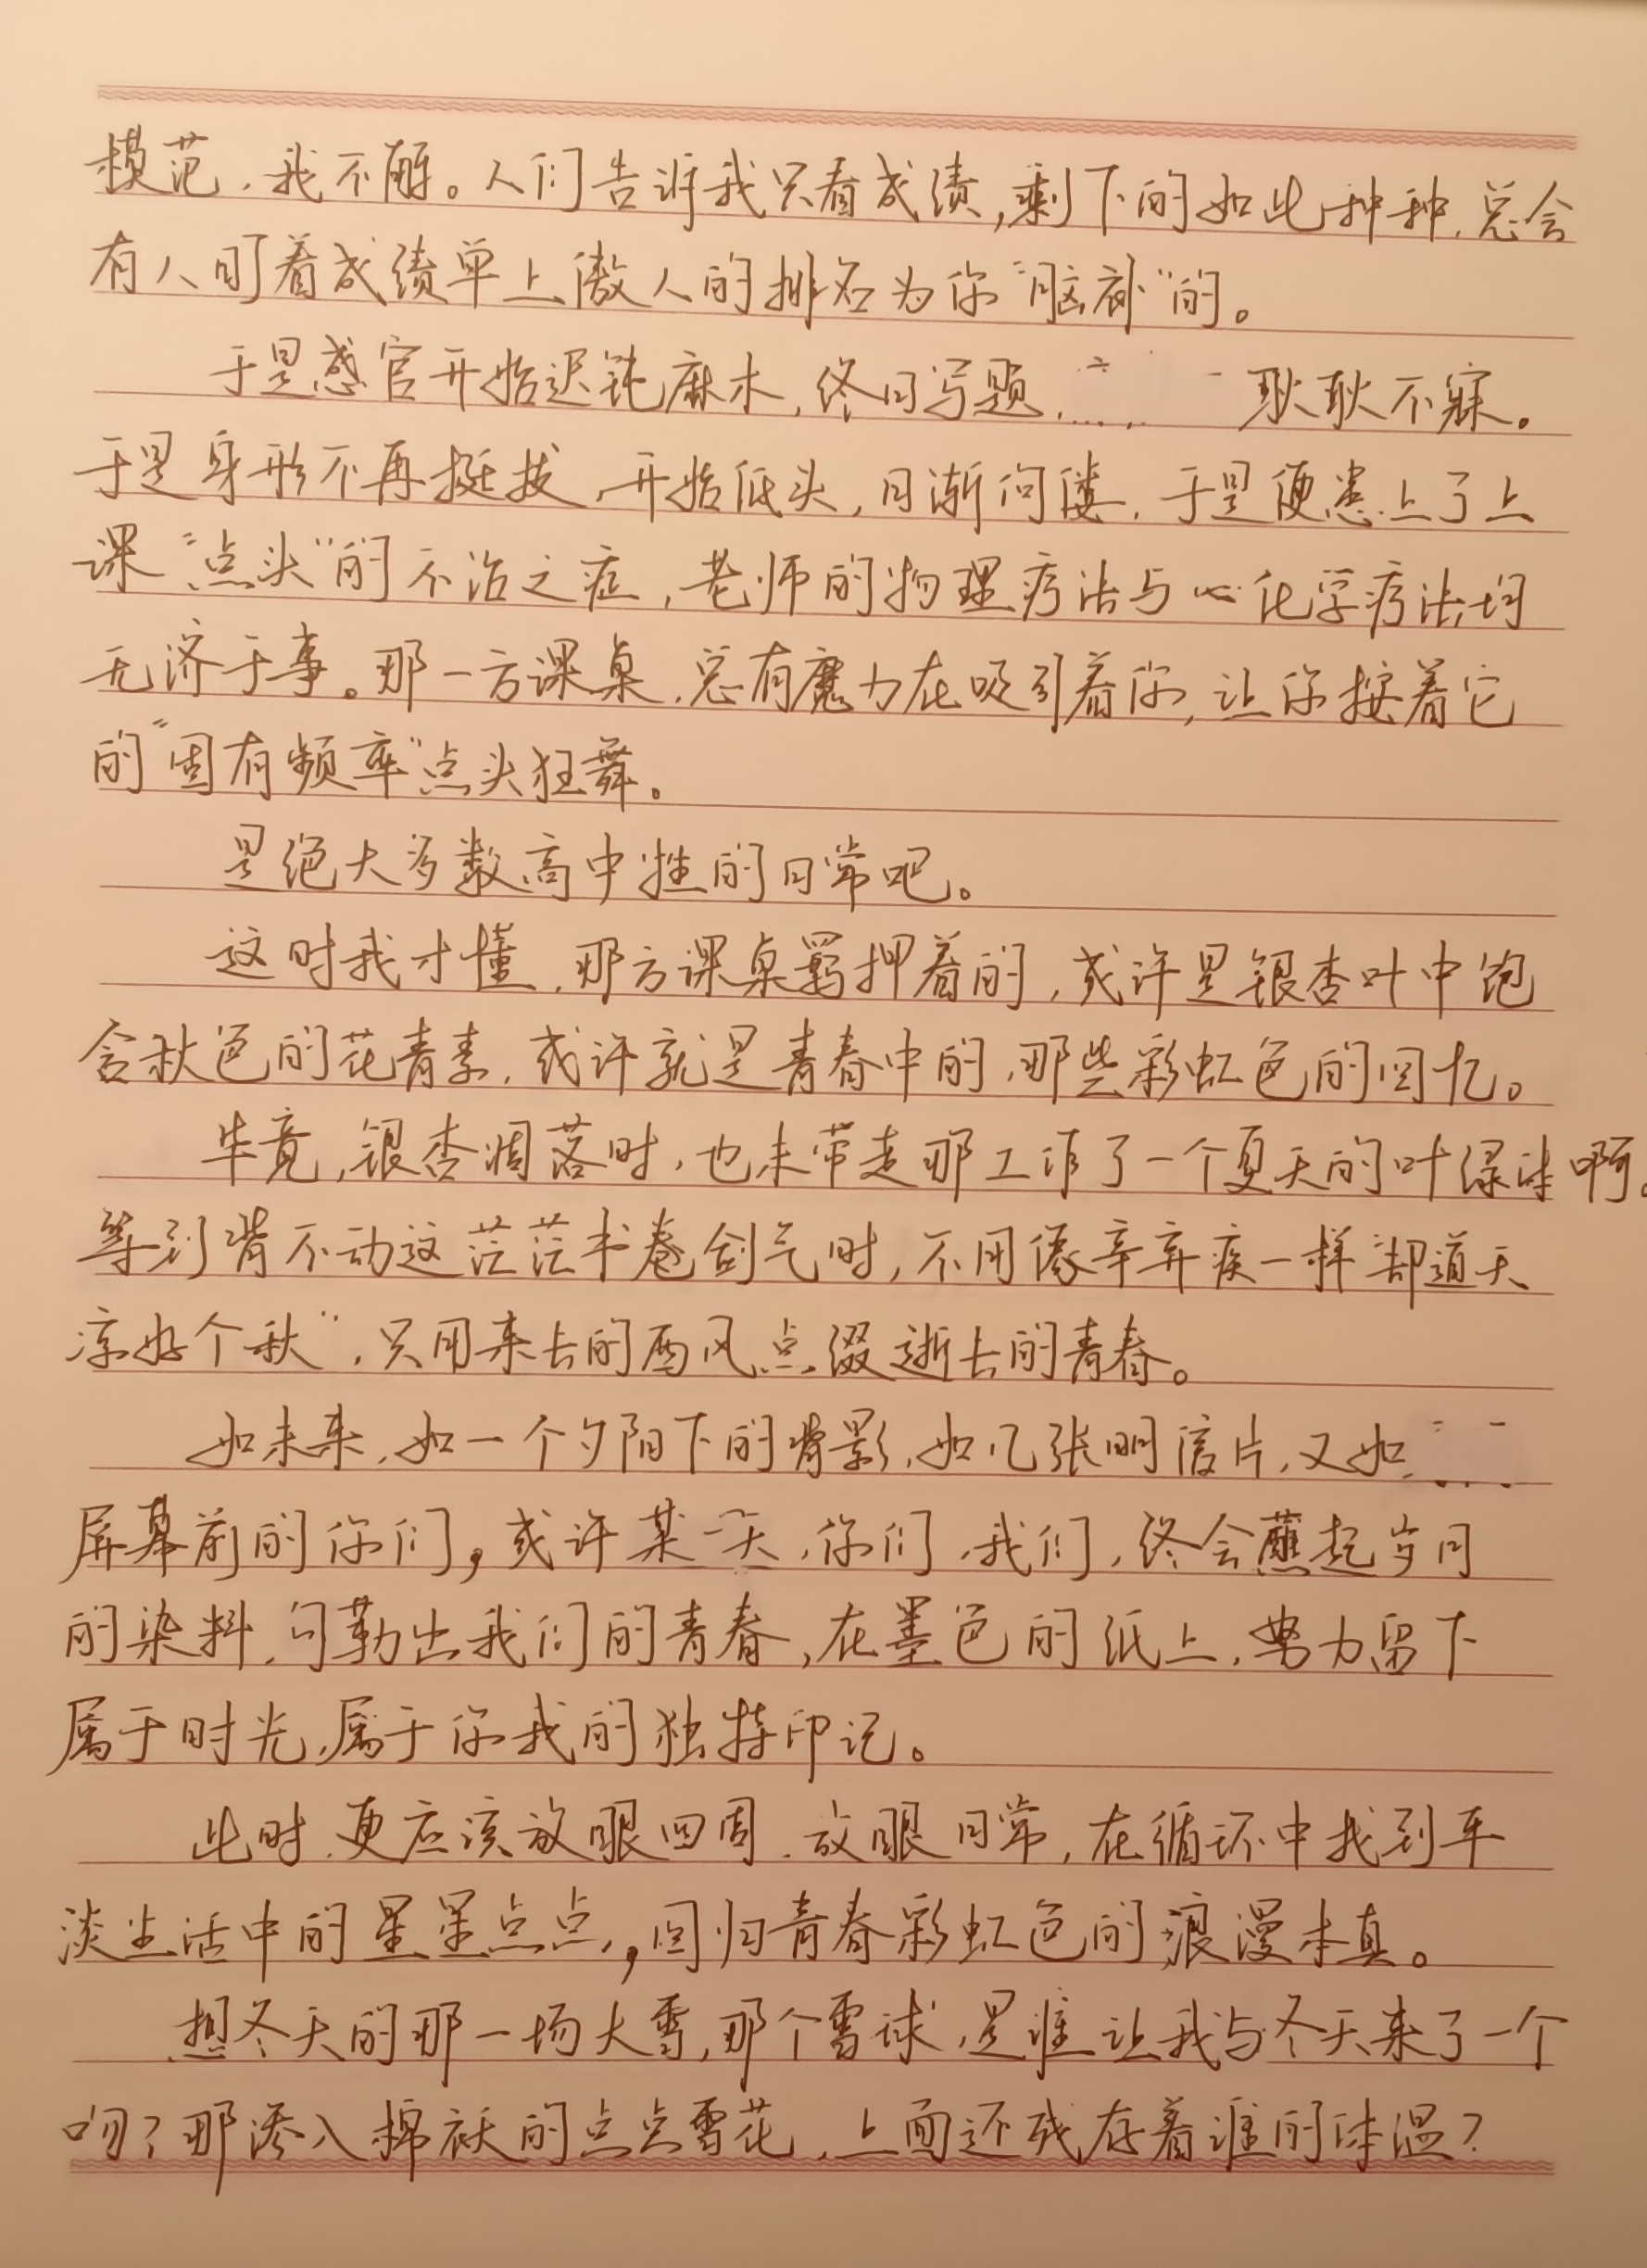 模范，我不配。人们告诉我只看成绩，剩下的如此种种，总会
有人盯着成绩单上傲人的排名为你“脑补”的。
于是感官开始迟钝麻木，终日写题， 耿耿不寐。
于是身形不再挺拔，开始低头，日渐佝偻，于是便患上了上
课“点头”的不治之症，老师的物理疗法与化学疗法均
无济于事。那一方课桌，总有魔力在吸引着你，让你按着它
的“固有频率”点头狂舞。
是绝大多数高中牲的日常吧。
这时我才懂，那方课桌羁押着的，或许是银杏叶中饱
含秋色的花青素，或许就是青春中的，那些彩虹色的回忆。
毕竟，银杏凋落时，也未带走那工作了一个夏天的叶绿体啊。
等到背不动这茫茫书卷剑气时，不用像辛弃疾一样却道天
凉好个秋”，只用来去的西风点缀逝去的青春。
如未来，如一个夕阳下的背影，如几张明信片，又如
屏幕前的你们，或许某一天，你们，我们，终会蘸起岁月
的染料，勾勒出我们的青春，在墨色的纸上，努力留下
属于时光，属于你我的独特印记。
此时，更应该放眼四周，放眼日常，在循环中找到平
淡生活中的星星点点，回归青春彩虹色的浪漫本真。
想冬天的那一场大雪，那个雪球，是谁让我与冬天来了一个
吻？那渗入棉袄的点点雪花，上面还残存着谁的体温？